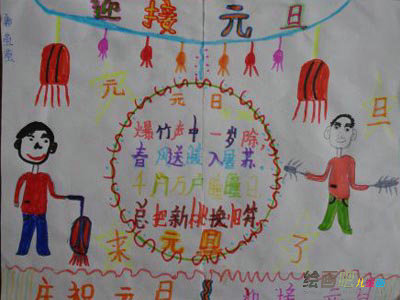 迎接元旦
元 元日
旦
爆竹声中一岁除,
春风送暖入屠苏.
千门万户曈曈日
总把新桃换旧符.
来 元旦 了
庆祝元旦 迎接元旦
绘画吧